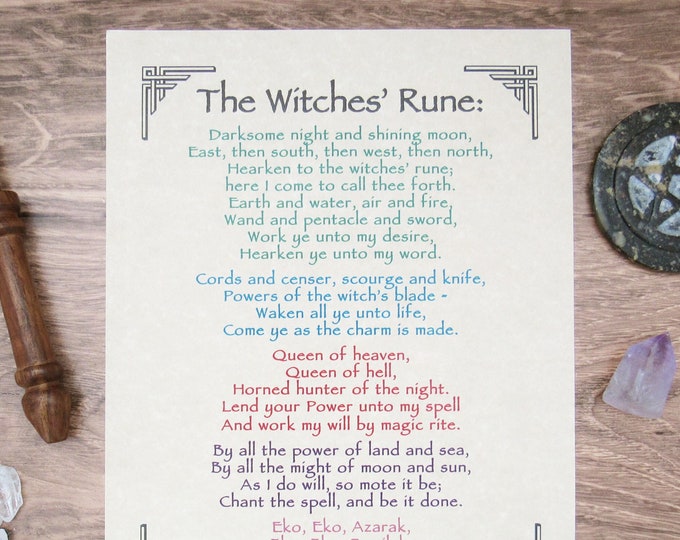 The Witches' Rune:
Darksome night and shining moon,
East, then south, then west, then north,
Hearken to the witches' rune;
here I come to call thee forth.
Earth and water, air and fire,
Wand and pentacle and sword,
Work ye unto my desire,
Hearken ye unto my word.
Cords and censer, scourge and knife,
Powers of the witch's blade -
Waken all ye unto life,
Come ye as the charm is made.
Queen of heaven,
Queen of hell,
Horned hunter of the night.
Lend your Power unto my spell
And work my will by magic rite.
By all the power of land and sea,
By all the might of moon and sun,
As I do will, so mote it be;
Chant the spell, and be it done.
Eko, Eko, Azarak,